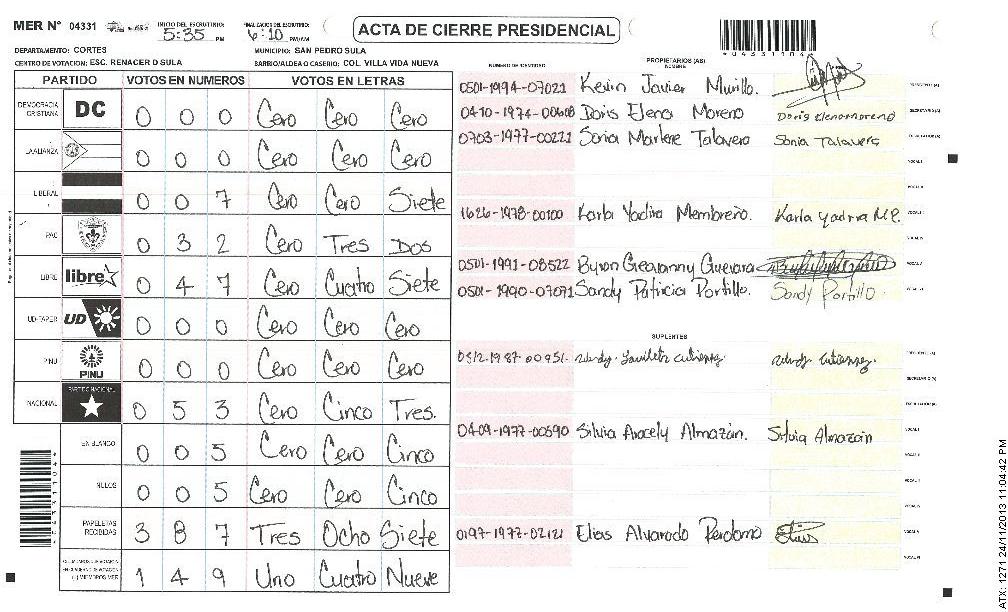 MER N° 04331 INICIO DEL ESCRUTINIO: 5:35 PM FINALIZACION DEL ESCRUTINIO: 6:10 PM/AM
ACTA DE CIERRE PRESIDENCIAL
DEPARTAMENTO: CORTES MUNICIPIO: SAN PEDRO SULA
CENTRO DE VOTACION: ESC. RENACER D SULA BARRIO/ALDEA O CASERIO: COL. VILLA VIDA NUEVA
PARTIDO VOTOS EN NUMEROS VOTOS EN LETRAS
DEMOCRACIA CRISTIANA DC 0 0 0 Cero Cero Cero
LA ALIANZA 0 0 0 Cero Cero Cero
LIBERAL 0 0 7 Cero Cero Siete
PAC 0 3 2 Cero Tres Dos
LIBRE libre 0 4 7 Cero Cuatro Siete
UD-FAPER UD 0 0 0 Cero Cero Cero
PINU PINU 0 0 0 Cero Cero Cero
NACIONAL PARTIDO NACIONAL 0 5 3 Cero Cinco Tres.
EN BLANCO 0 0 5 Cero Cero Cinco
NULOS 0 0 5 Cero Cero Cinco
PAPELETAS RECIBIDAS 3 8 7 Tres Ocho Siete
MIEMBROS MER 1 4 9 Uno Cuatro Nueve
PROPIETARIOS (AS)
NUMERO DE IDENTIDAD NOMBRE
0501-1994-07021 Kevin Javier Murillo.
0410-1974-00608 Doris Elena Moreno Doris Elena moreno
0703-1977-00221 Sonia Marlene Talavera Sonia Talavera
1626-1978-00100 Karla Yadira Membreño. Karla Yadira M.P.
0501-1991-08522 Byron Geovanny Guevara
0501-1990-07071 Sandy Patricia Portillo. Sandy Portillo
SUPLENTES
0512-1987-00951 Gutierrez
0409-1977-00590 Silvia Aracely Almazán. Silvia Almazán
0197-1977-02121 Elias Alvarado Perdomo Elias
ATX: 1271 24/11/2013 11:04:42 PM